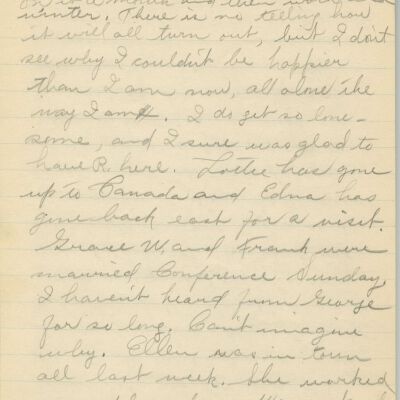 winter. There is no telling how
it will all turn out, but I don't
see why I couldn't be happier
than I am now, all alone the
way I am. I do get so lone-
some, and I sure was glad to
have R. here. Lottie has gone
up to Canada and Edna has
gone back east for a visit.
Grace W. and Frank were
married Conference Sunday,
I haven't heard from George
for so long. Can't imagine
why. Ellen was in town
all last week. She worked